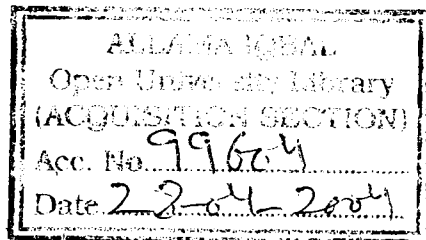 ALLAMA IQBAL
Open University Library
(ACQUISITION SECTION)
Acc. No. 99604
Date 28-04-2004